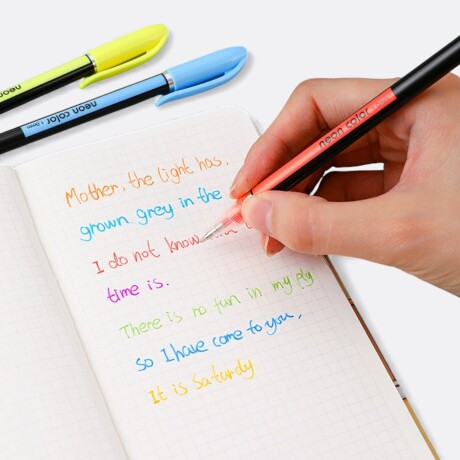 neon color
neon color
neon color
Mother, the light has,
grown grey in the
I do not know
time is.
There is no fun in my ply
so I have come to you,
It is saturdy